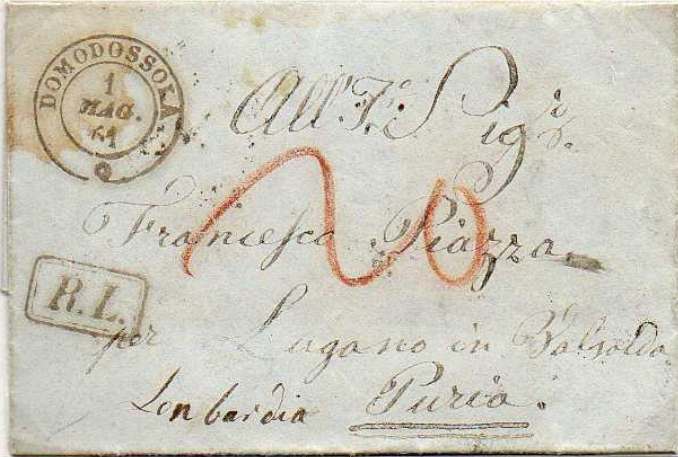 DOMODOSSOLA
1
MAG.
61
All' Sig.
20
Francesco Piazza
R.L.
per Lugano in Valsolda
Lombardia Puria.